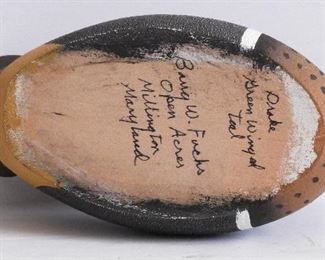 Drake
Green Winged
Teal
Barry W. Fuchs
Open Acres
Millington
Maryland